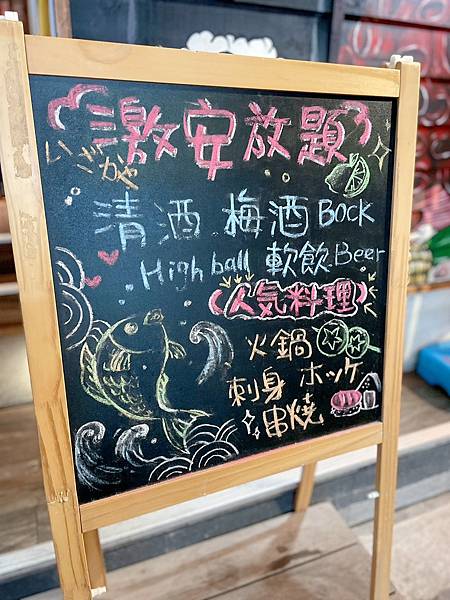 激安放題
いざかや
清酒 梅酒 BOCK
High ball 軟飲 Beer
人気料理
火鍋
刺身 ホッケ
串燒